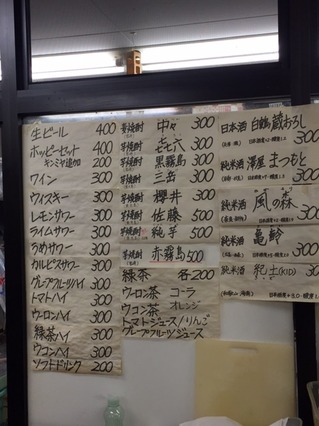 生ビール 400
ホッピーセット 400
キンミヤ追加 200
ワイン 300
ウイスキー 300
レモンサワー 300
ライムサワー 300
うめサワー 300
カルピスサワー 300
グレープフルーツハイ 300
トマトハイ 300
ウーロンハイ 300
緑茶ハイ 300
ウコンハイ 300
ソフトドリンク 200
芋焼酎 中々 300
芋焼酎 㐂六 300
芋焼酎 黒霧島 300
芋焼酎 三岳 300
芋焼酎 櫻井 300
芋焼酎 佐藤 500
芋焼酎 純芋 500
芋焼酎 赤霧島 500
緑茶 各200
ウーロン茶 コーラ
ウコン茶 オレンジ
トマトジュース/りんご
グレープフルーツ/ジュース
日本酒 白鶴 蔵おろし
300
純米酒 澤屋 まつもと
300
純米酒 "風の森"
300
純米酒 亀齢
300
純米酒 紀土(KID)